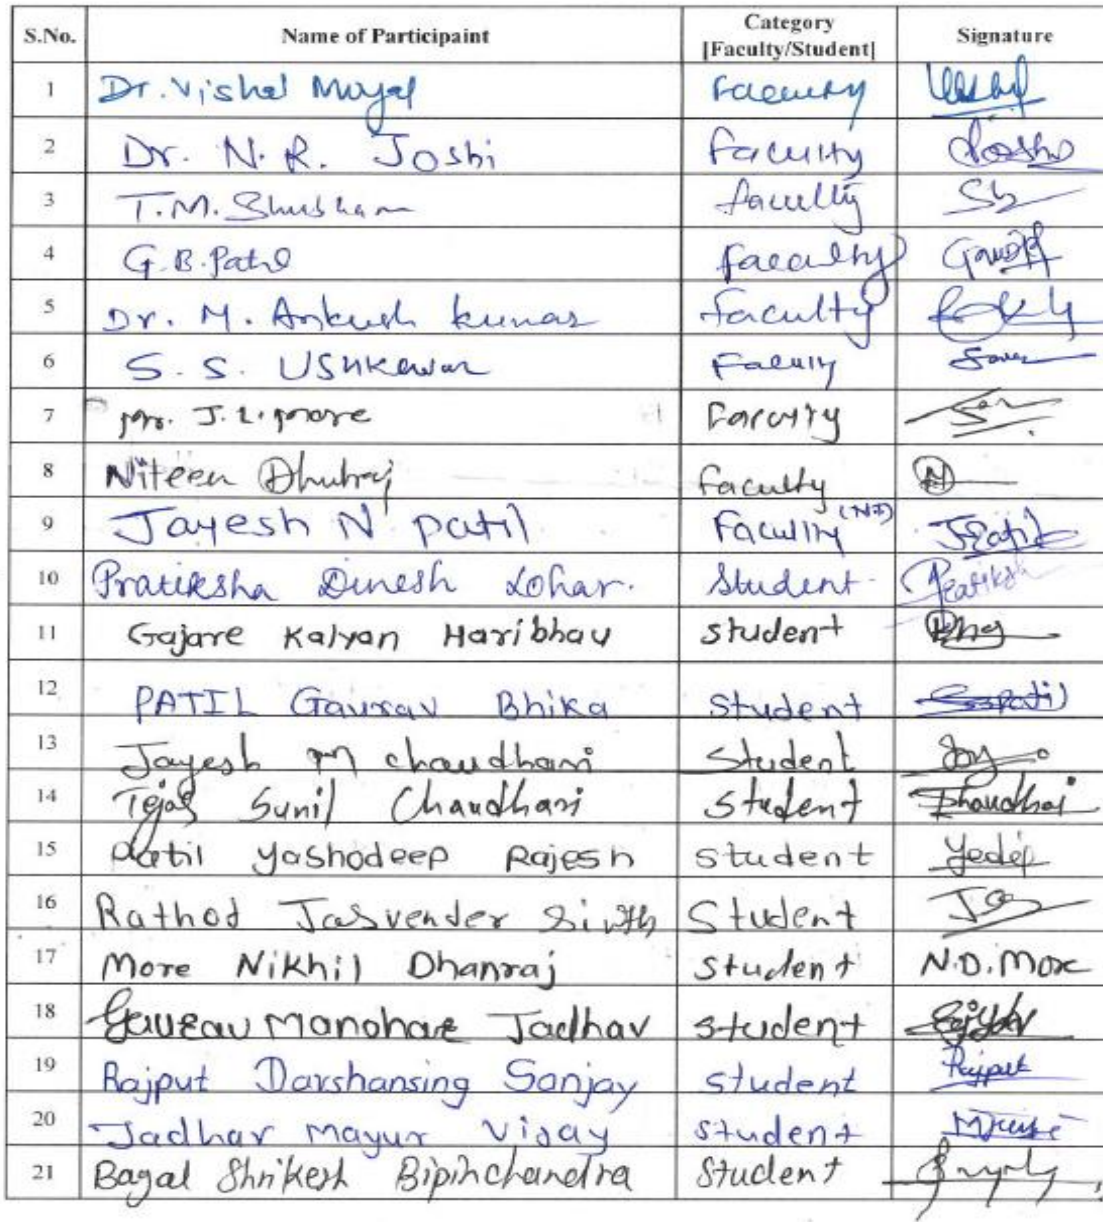 S.No. Name of Participaint Category [Faculty/Student] Signature
1 Dr. Vishal Faculty
2 Dr. N. R. Joshi Faculty Joshi
3 T.M. Shubham faculty
4 G.B. Patil faculty
5 Dr. M. Ankush kumar Faculty
6 S. S. Ushkewar Faculty
7 Mr. J. L. more Faculty
8 Niteen Dhutraj faculty N
9 Jayesh N patil Faculty JPatil
10 Pratiksha Dinesh Lohar. Student. Pratiksha
11 Gajare Kalyan Haribhau student
12 PATIL Gaurav Bhika Student
13 Jayesh M chaudhari Student
14 Tejas Sunil Chaudhari student
15 Patil Yashodeep Rajesh student
16 Rathod Jasvender Student
17 More Nikhil Dhanraj student N.D. More
18 Gaurav Manohar Jadhav student
19 Rajput Darshansing Sanjay student Rajput
20 Jadhav Mayur Vijay student
21 Bagal Shrikesh Bipinchandra Student